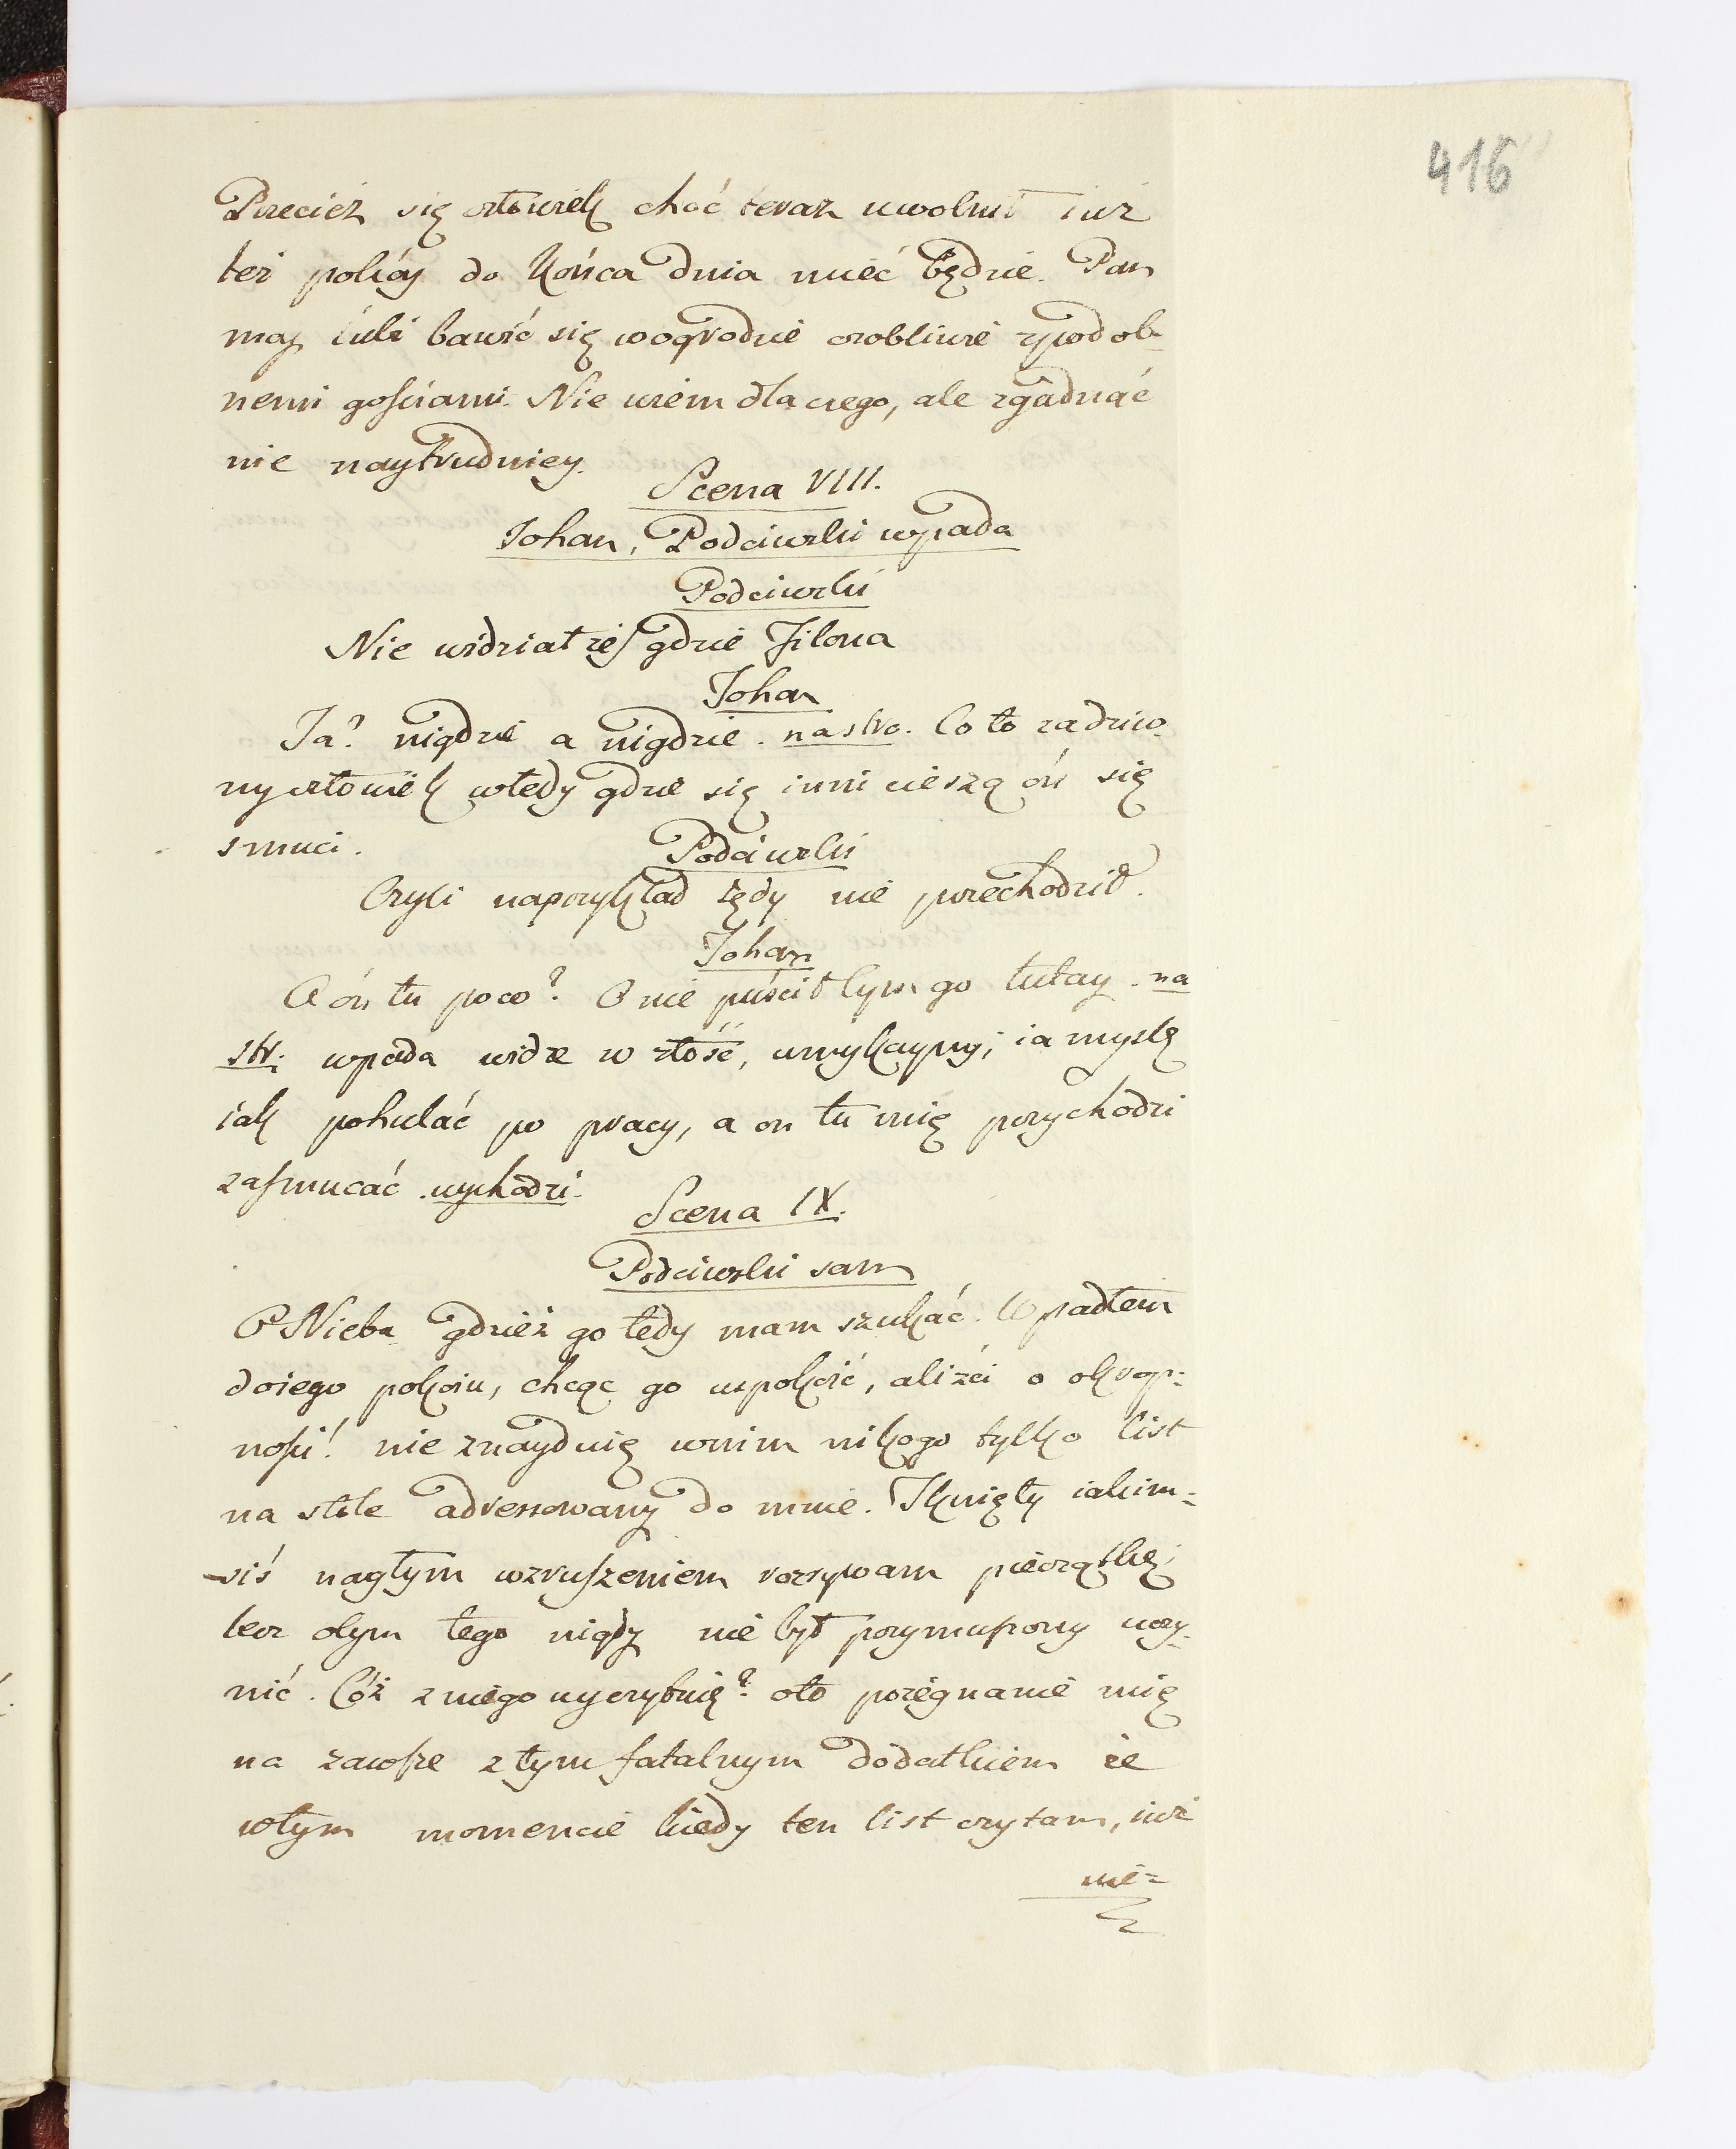 416
Przecież się człowiek choć teraz uwolnił iuż
też pokóy do końca dnia mieć będzie. Pan
moy lubi bawić się wogrodzie osobliwie zpodob-
nemi gościami. Nie wiem dla czego, ale zgadnąć
nie naytrudniey.
Scena VIII.
Johan, Podciwski wpada
Podciwski
Nie widziałżeś gdzie Filona
Johan
Ja? nigdzie a nigdzie. na stro. Co to za dziw-
ny człowiek wtedy gdzie się inni cieszą ón się
smuci.
Podciwski
Czyli naprzykład tędy nie przechodził.
Johan
A ón tu poco? O nie puścił bym go tutay. na
str: wpada widzę w złość, umykaymy; ia myslę
iak pohulać po pracy, a on tu mię przychodzi
zasmucać. wychodzi.
Scena IX.
Podciwski sam
O Nieba gdzież go tedy mam szukać. Wpadłem
doiego pokoiu, chcąc go uspokoić, aliżci o okrop:
ności! nie znayduię wnim nikogo tylko list
na stole adressowany do mnie. Tknięty iakim=
siś nagłym wzruszeniem rozrywam pieczątkę;
bez tego nigdy nie był przymuszony uczy-
nić. Cóż z niego wyczytuię? oto pożegnanie mię
na zawsze z tym fatalnym dodatkiem że
wtym momencie kiedy ten list czytam, iuż
nie=